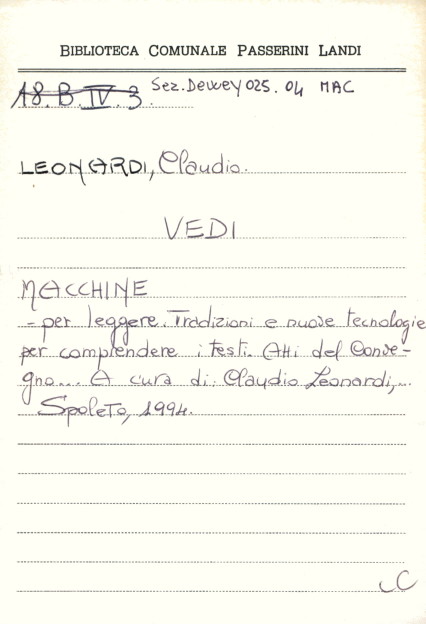 BIBLIOTECA COMUNALE PASSERINI LANDI
18. B. IV. 3. Sez. Dewey 025. 04 MAC
LEONARDI, Claudio.
VEDI
MACCHINE
- per leggere. Tradizioni e nuove tecnologie
per comprendere i testi. Atti del Conve-
gno... A cura di Claudio Leonardi,...
Spoleto, 1994.